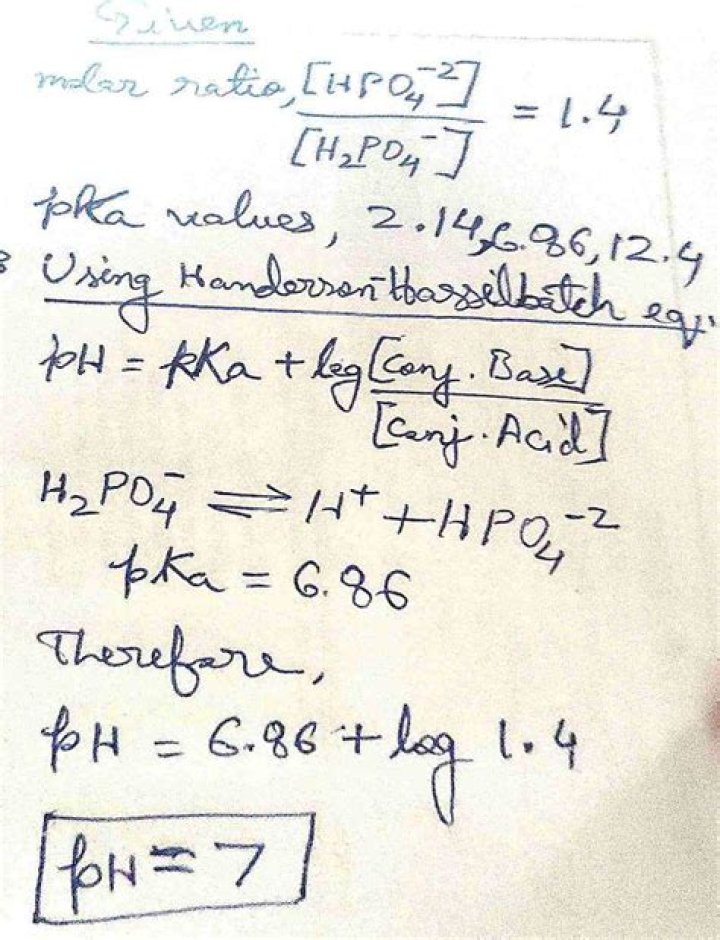 Given
molar ratio, [HPO₄⁻²] / [H₂PO₄⁻] = 1.4
pKa values, 2.14, 6.86, 12.4
Using Handerson-Hasselbatch eq.
pH = pKa + log [Conj. Base] / [Conj. Acid]
H₂PO₄⁻ ⇌ H⁺ + HPO₄⁻²
pKa = 6.86
Therefore,
pH = 6.86 + log 1.4
pH = 7